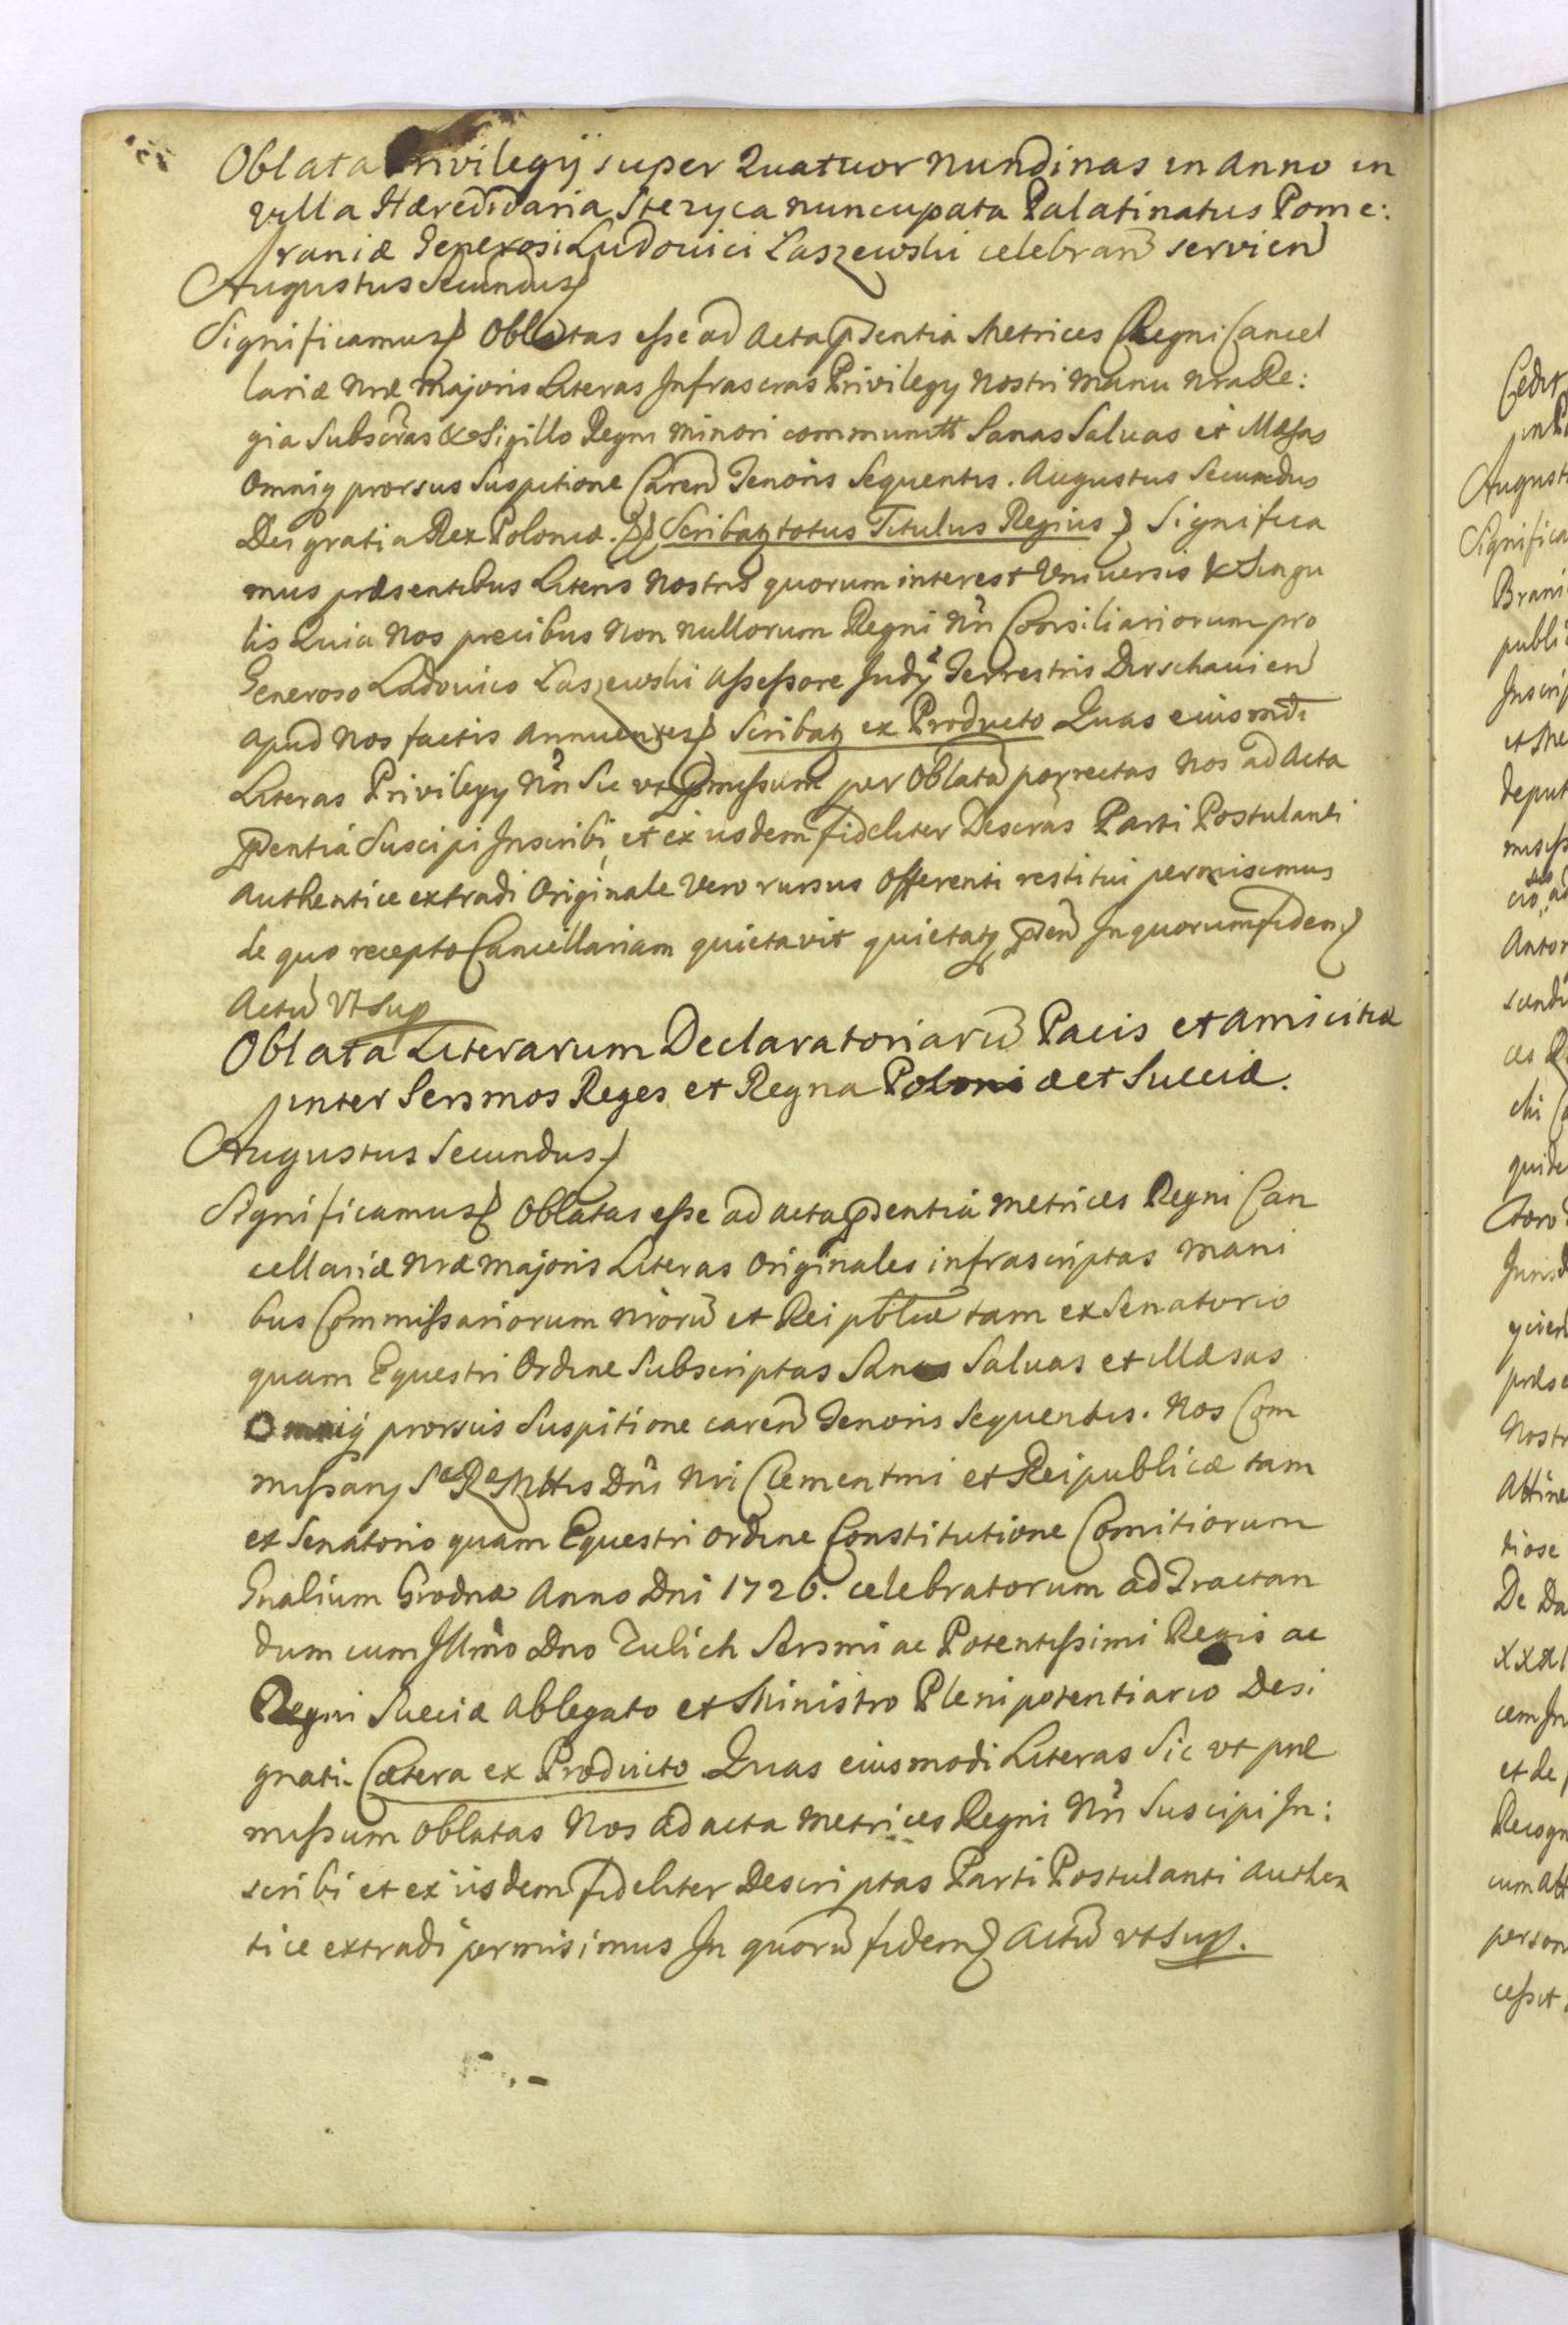 Oblata Privilegij super Quatuor Nundinas in Anno in
villa Hæredidaria Stezyca nuncupata Palatinatus Pome:
raniæ Generosi Ludovici Łaszewski celebran servien
Augustus Secundus
Significamus Oblatas esse ad Acta pntia Metrices Regni Cancel
lariæ Nræ Majoris Literas Infrascras Privilegy Nostri Manu Nra Re:
gia Subscras & Sigillo Regni Minori communitt Sanas Salvas et Illæsas
Omniq prorsus Suspitione Caren Tenoris Sequentis. Augustus Secundus
Dei gratia Rex Poloniæ. Scribaty totus Titulus Regius Significa
mus præsentibus Literis Nostris quorum interest Universis & Singu
lis Quia Nos precibus Non nullorum Regni Nri Consiliariorum pro
Generoso Ludovico Łaszewski Assessore Judy Terrestris Dirschavien
apud Nos factis Annuentes Scribaty ex Producto Quas eiusmdi
Literas Privilegy Nri Sic ut pmissum per Oblatã porrectas Nos ad Acta
pntia Suscipi Inscribi, et ex iisdem fideliter Descras Parti Postulanti
Authentice extradi Originale Vero rursus Offerenti restitui permisimus
de quo recepto Cancellariam quietavit quietatq pñ In quorum fidem
Actũ Vt Sup
Oblata Literarum Declaratoriarũ Pacis et Amicitiæ
inter Sersmos Reges et Regna Poloniæ et Sueciæ.
Augustus Secundus
Significamus Oblatas esse ad acta pntia Metrices Regni Can
cellariæ Nræ Majoris Literas Originales infrascriptas Mani
bus Commissariorum Nrorũ et Rei pblicæ tam ex Senatorio
quam Equestri Ordine Subscriptas Sanas Salvas et Illæsas
Omniq prorsus Suspitione caren Tenoris Sequentis. Nos Com
missary Sæ Ræ Mttis Dni Nri Clementmi et Reipublicæ tam
ex Senatorio quam Equestri Ordine Constitutione Comitiorum
Gnalium Grodnæ Anno Dni 1726. celebratorum ad Tractan
dum cum Illmo Dno Zulich Sersmi ac Potentissimi Regis ac
Regni Sueciæ Ablegato et Ministro Plenipotentiario Desi
gnati. Cætera ex Producto Quas eiusmodi Literas Sic ut præ
missum Oblatas Nos ad acta Metrices Regni Nri Suscipi In:
scribi et ex iisdem fideliter Descriptas Parti Postulanti Authen
tice extradi permisimus In quorũ fidem Actũ vt Sup.